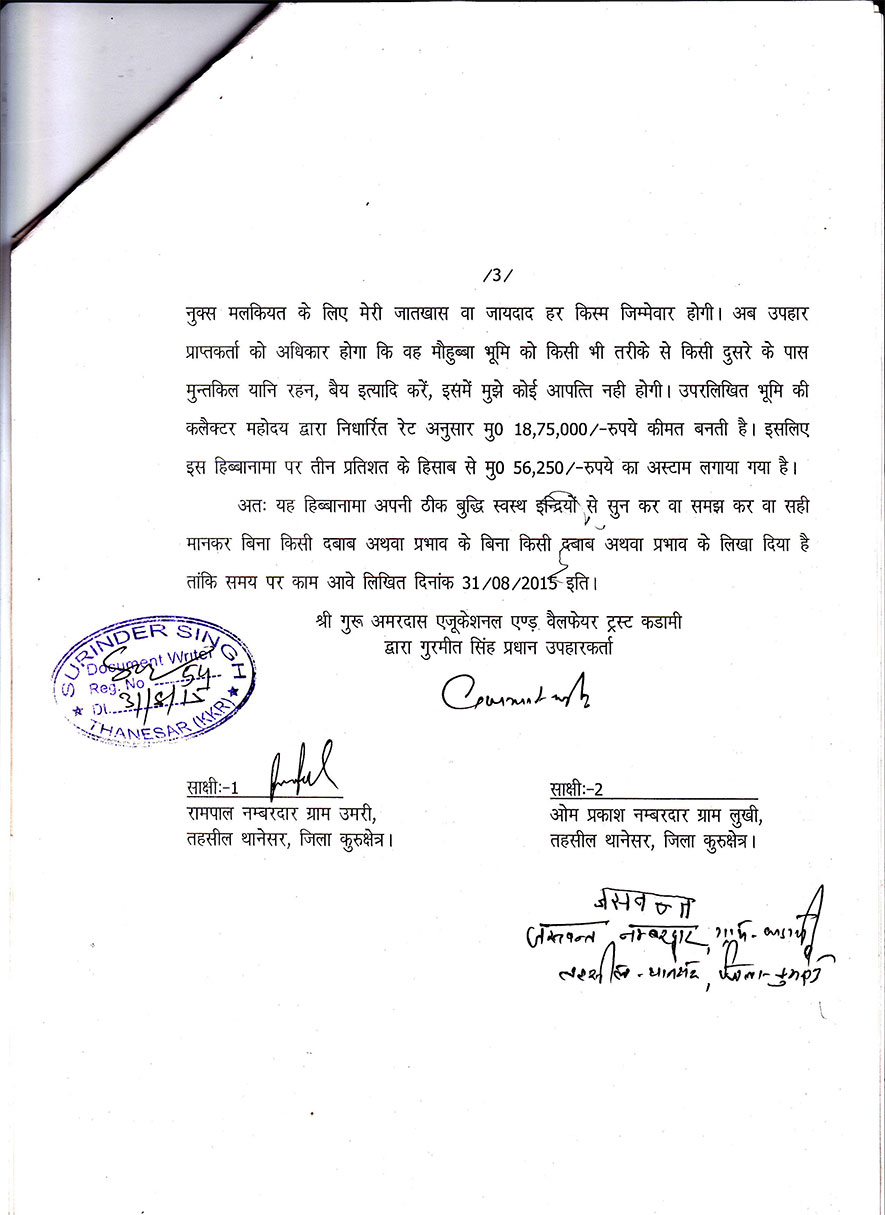 /3/
नुक्स मलकियत के लिए मेरी जातखास वा जायदाद हर किस्म जिम्मेवार होगी। अब उपहार
प्राप्तकर्ता को अधिकार होगा कि वह मौहुब्बा भूमि को किसी भी तरीके से किसी दुसरे के पास
मुन्तकिल यानि रहन, बैय इत्यादि करें, इसमें मुझे कोई आपत्ति नही होगी। उपरलिखित भूमि की
कलैक्टर महोदय द्वारा निधारित रेट अनुसार मु0 18,75,000/-रुपये कीमत बनती है। इसलिए
इस हिब्बानामा पर तीन प्रतिशत के हिसाब से मु0 56,250/-रुपये का अस्टाम लगाया गया है।
अतः यह हिब्बानामा अपनी ठीक बुद्धि स्वस्थ इन्द्रियों से सुन कर वा समझ कर वा सही
मानकर बिना किसी दबाब अथवा प्रभाव के बिना किसी दबाब अथवा प्रभाव के लिखा दिया है
तांकि समय पर काम आवे लिखित दिनांक 31/08/2015 इति।
श्री गुरू अमरदास एजूकेशनल एण्ड़ वैलफेयर ट्रस्ट कडामी
द्वारा गुरमीत सिंह प्रधान उपहारकर्ता
SURINDER SINGH
Document Writer
Reg. No 54
Dt. 31/8/15
THANESAR (KKR)
साक्षीः-1
रामपाल नम्बरदार ग्राम उमरी,
तहसील थानेसर, जिला कुरुक्षेत्र।
साक्षीः-2
ओम प्रकाश नम्बरदार ग्राम लुखी,
तहसील थानेसर, जिला कुरुक्षेत्र।
जसवन्त
जसवन्त नम्बरदार,